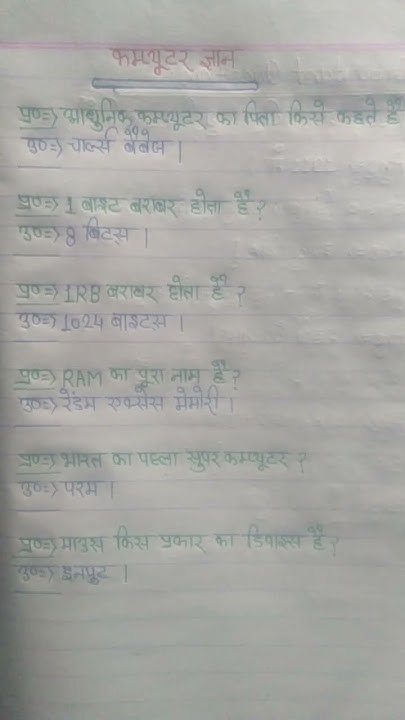 कम्प्यूटर ज्ञान
प्र०=> आधुनिक कम्प्यूटर का पिता किसे कहते हैं
उ०=> चार्ल्स बैबेज।
प्र०=> 1 बाइट बराबर होता है?
उ०=> 8 बिट्स।
प्र०=> 1RB बराबर होता है?
उ०=> 1024 बाइट्स।
प्र०=> RAM का पूरा नाम है?
उ०=> रेंडम एक्सेस मेमोरी।
प्र०=> भारत का पहला सुपर कम्प्यूटर?
उ०=> परम।
प्र०=> माउस किस प्रकार का डिवाइस है?
उ०=> इनपुट।